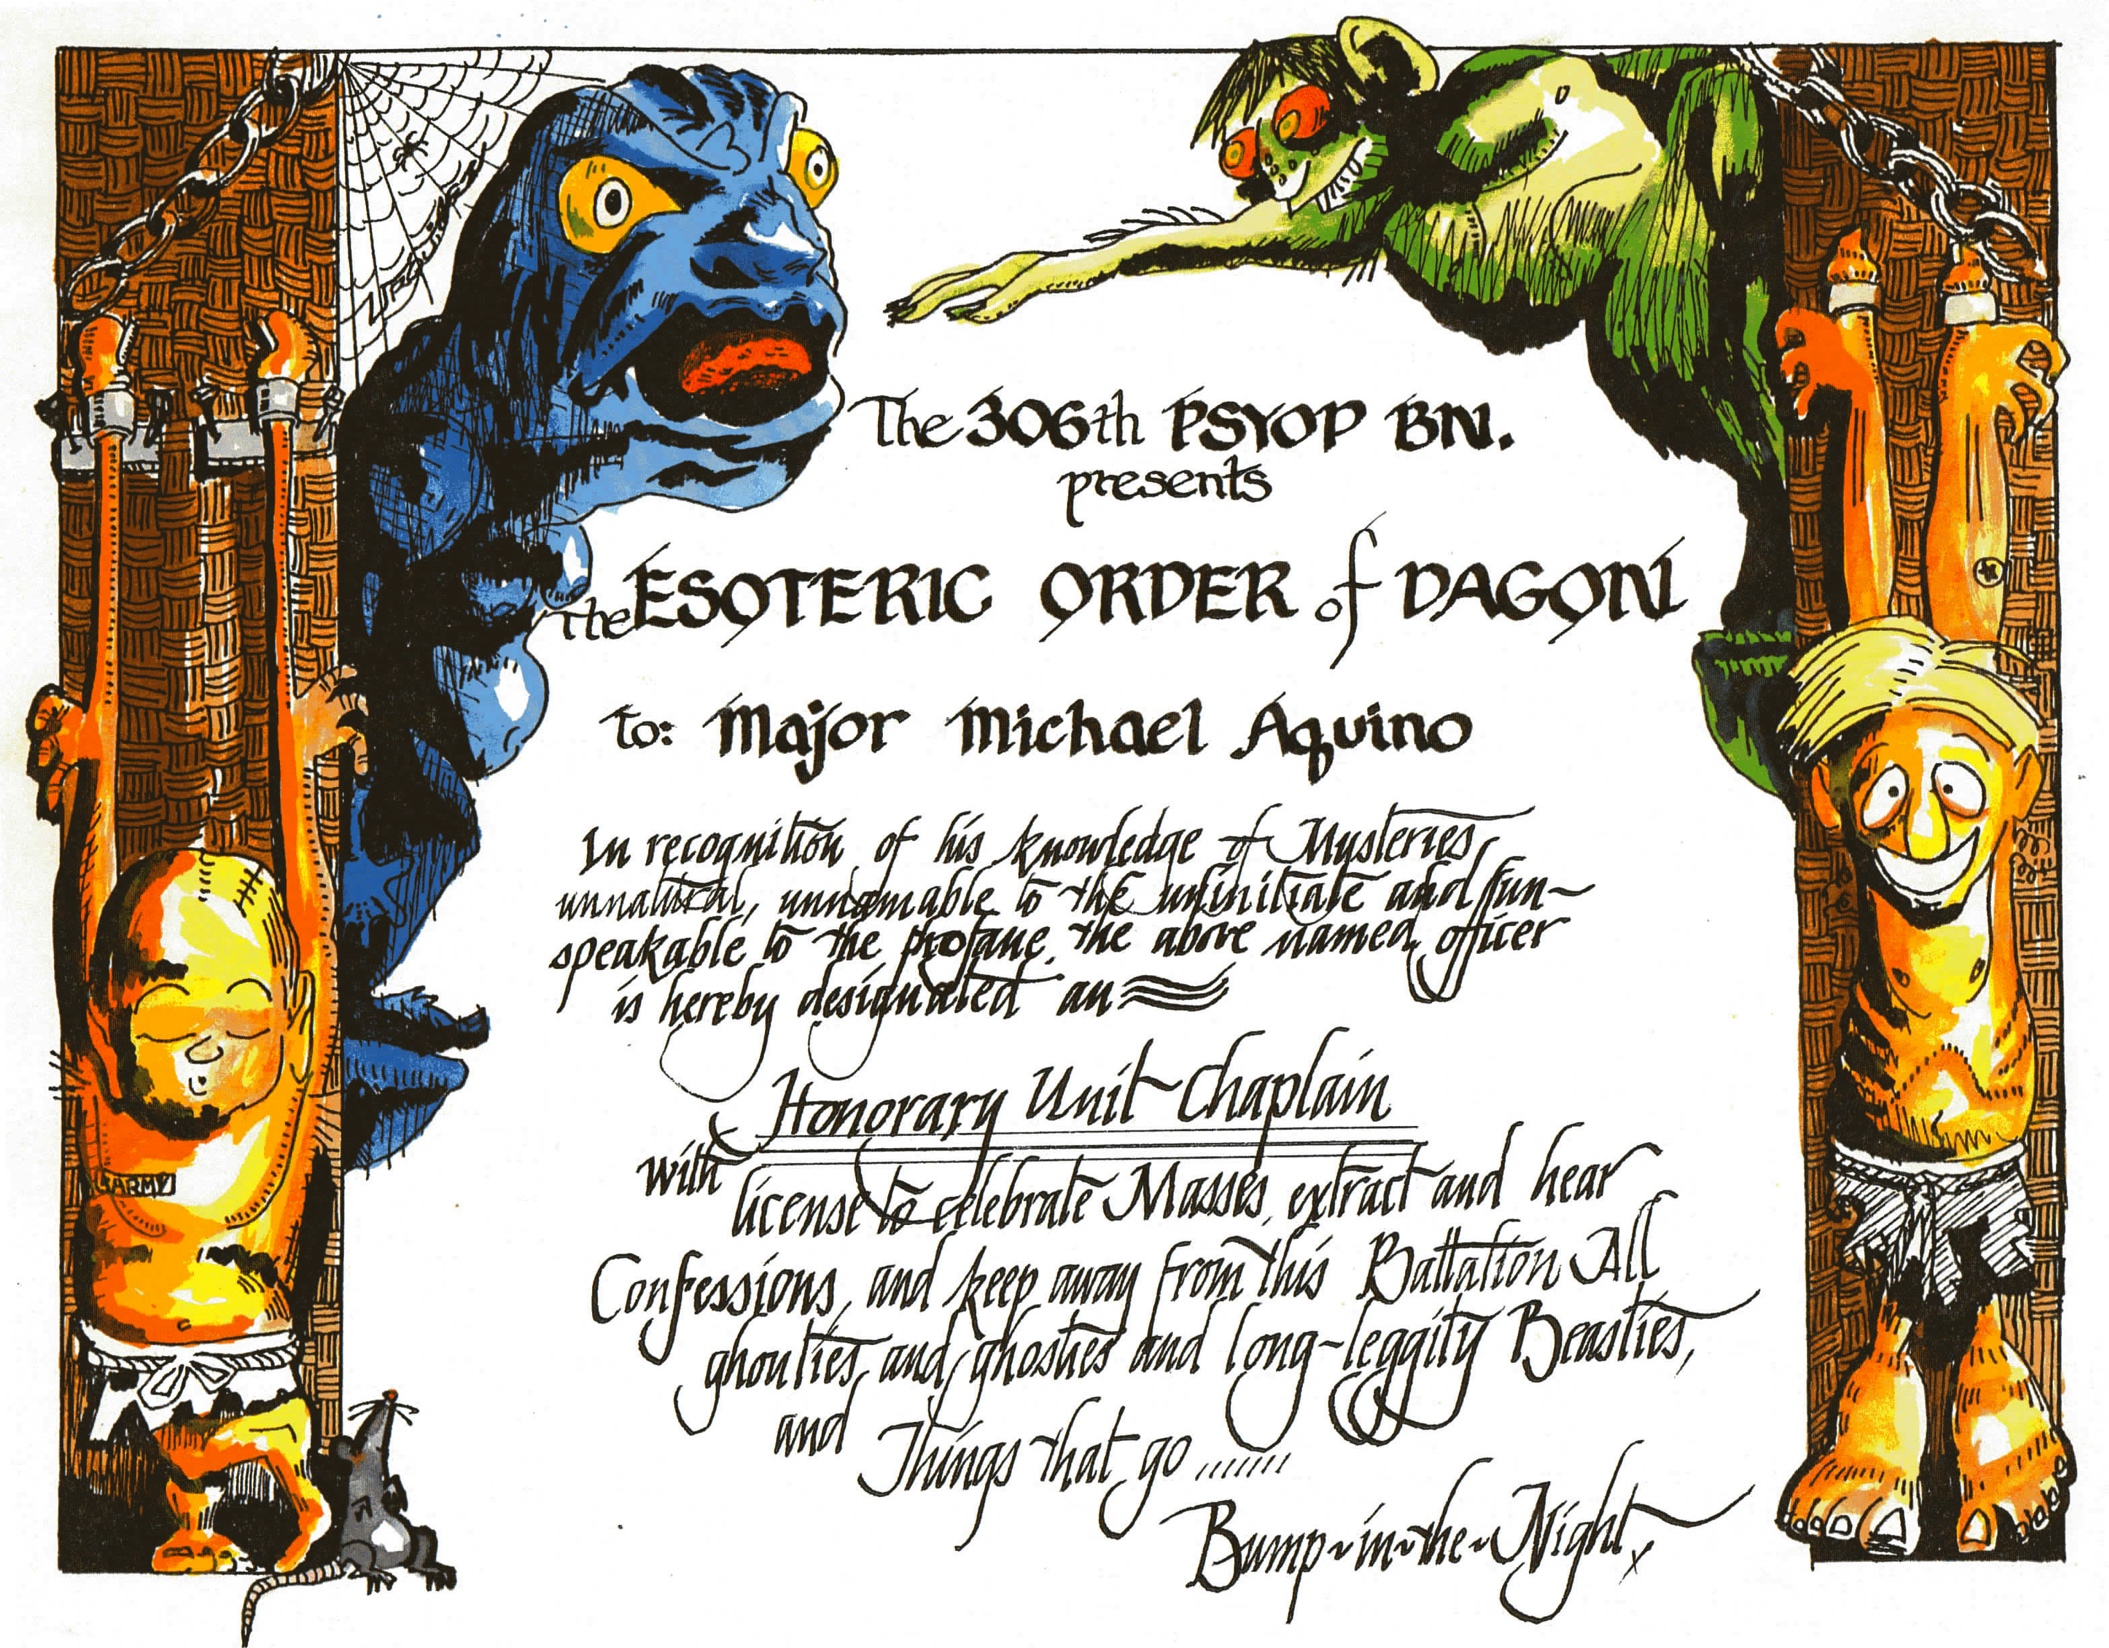 The 306th PSYOP BN.
presents
the ESOTERIC ORDER of DAGON
to: Major Michael Aquino
In recognition of his knowledge of Mysteries,
unnatural, unnamable to the uninitiate and un-
speakable to the profane, the above named officer
is hereby designated an
Honorary Unit Chaplain
with
license to celebrate Masses, extract and hear
Confessions, and keep away from this Battalion All
ghoulties and ghosties and long-leggity Beasties,
and Things that go .......
Bump-in-the-Night.
ARMY